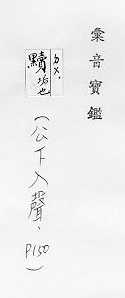 彙音寶鑑
黷垢也
(公下入聲,P150)